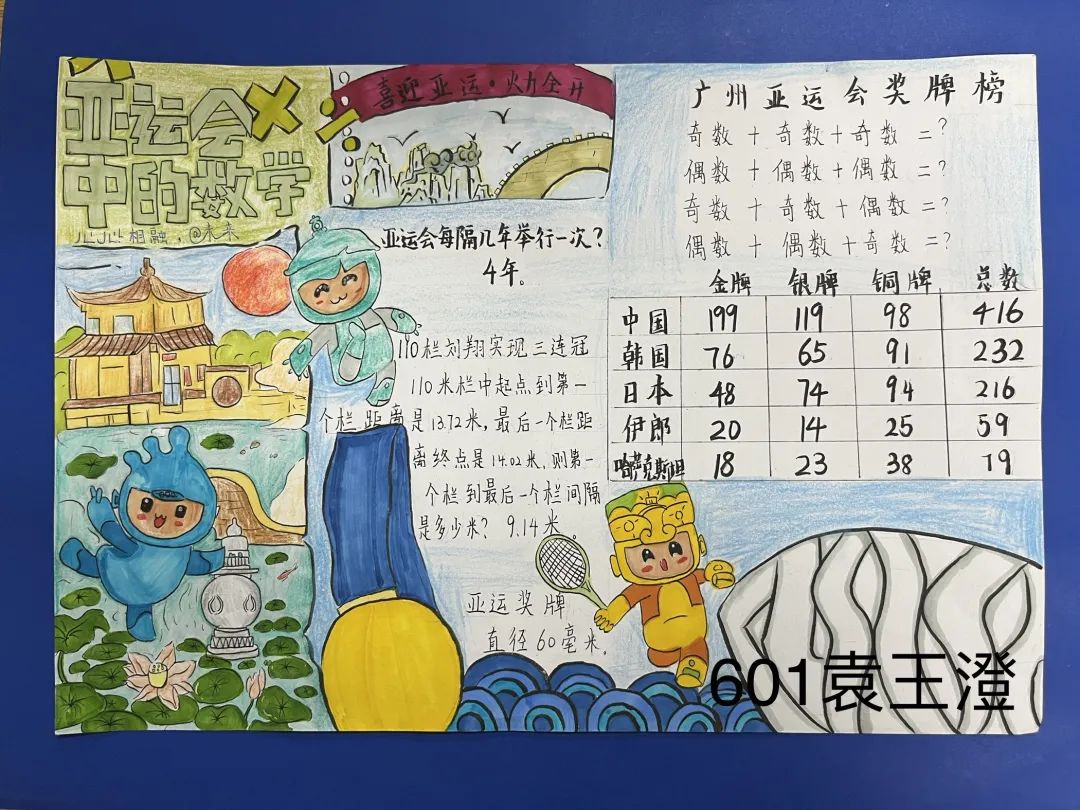 亚运会
中的数学
心心相融,@未来
喜迎亚运·火力全开
亚运会每隔几年举行一次?
4年。
110栏刘翔实现三连冠
110米栏中起点到第一
个栏距离是13.72米,最后一个栏距
离终点是14.02米,则第一
个栏到最后一个栏间隔
是多少米? 9.14米。
亚运奖牌
直径60毫米。
广州亚运会奖牌榜
奇数+奇数+奇数=?
偶数+偶数+偶数=?
奇数+奇数+偶数=?
偶数+偶数+奇数=?
金牌 银牌 铜牌 总数
中国 199 119 98 416
韩国 76 65 91 232
日本 48 74 94 216
伊郎 20 14 25 59
哈萨克斯坦 18 23 38 79
601袁王澄